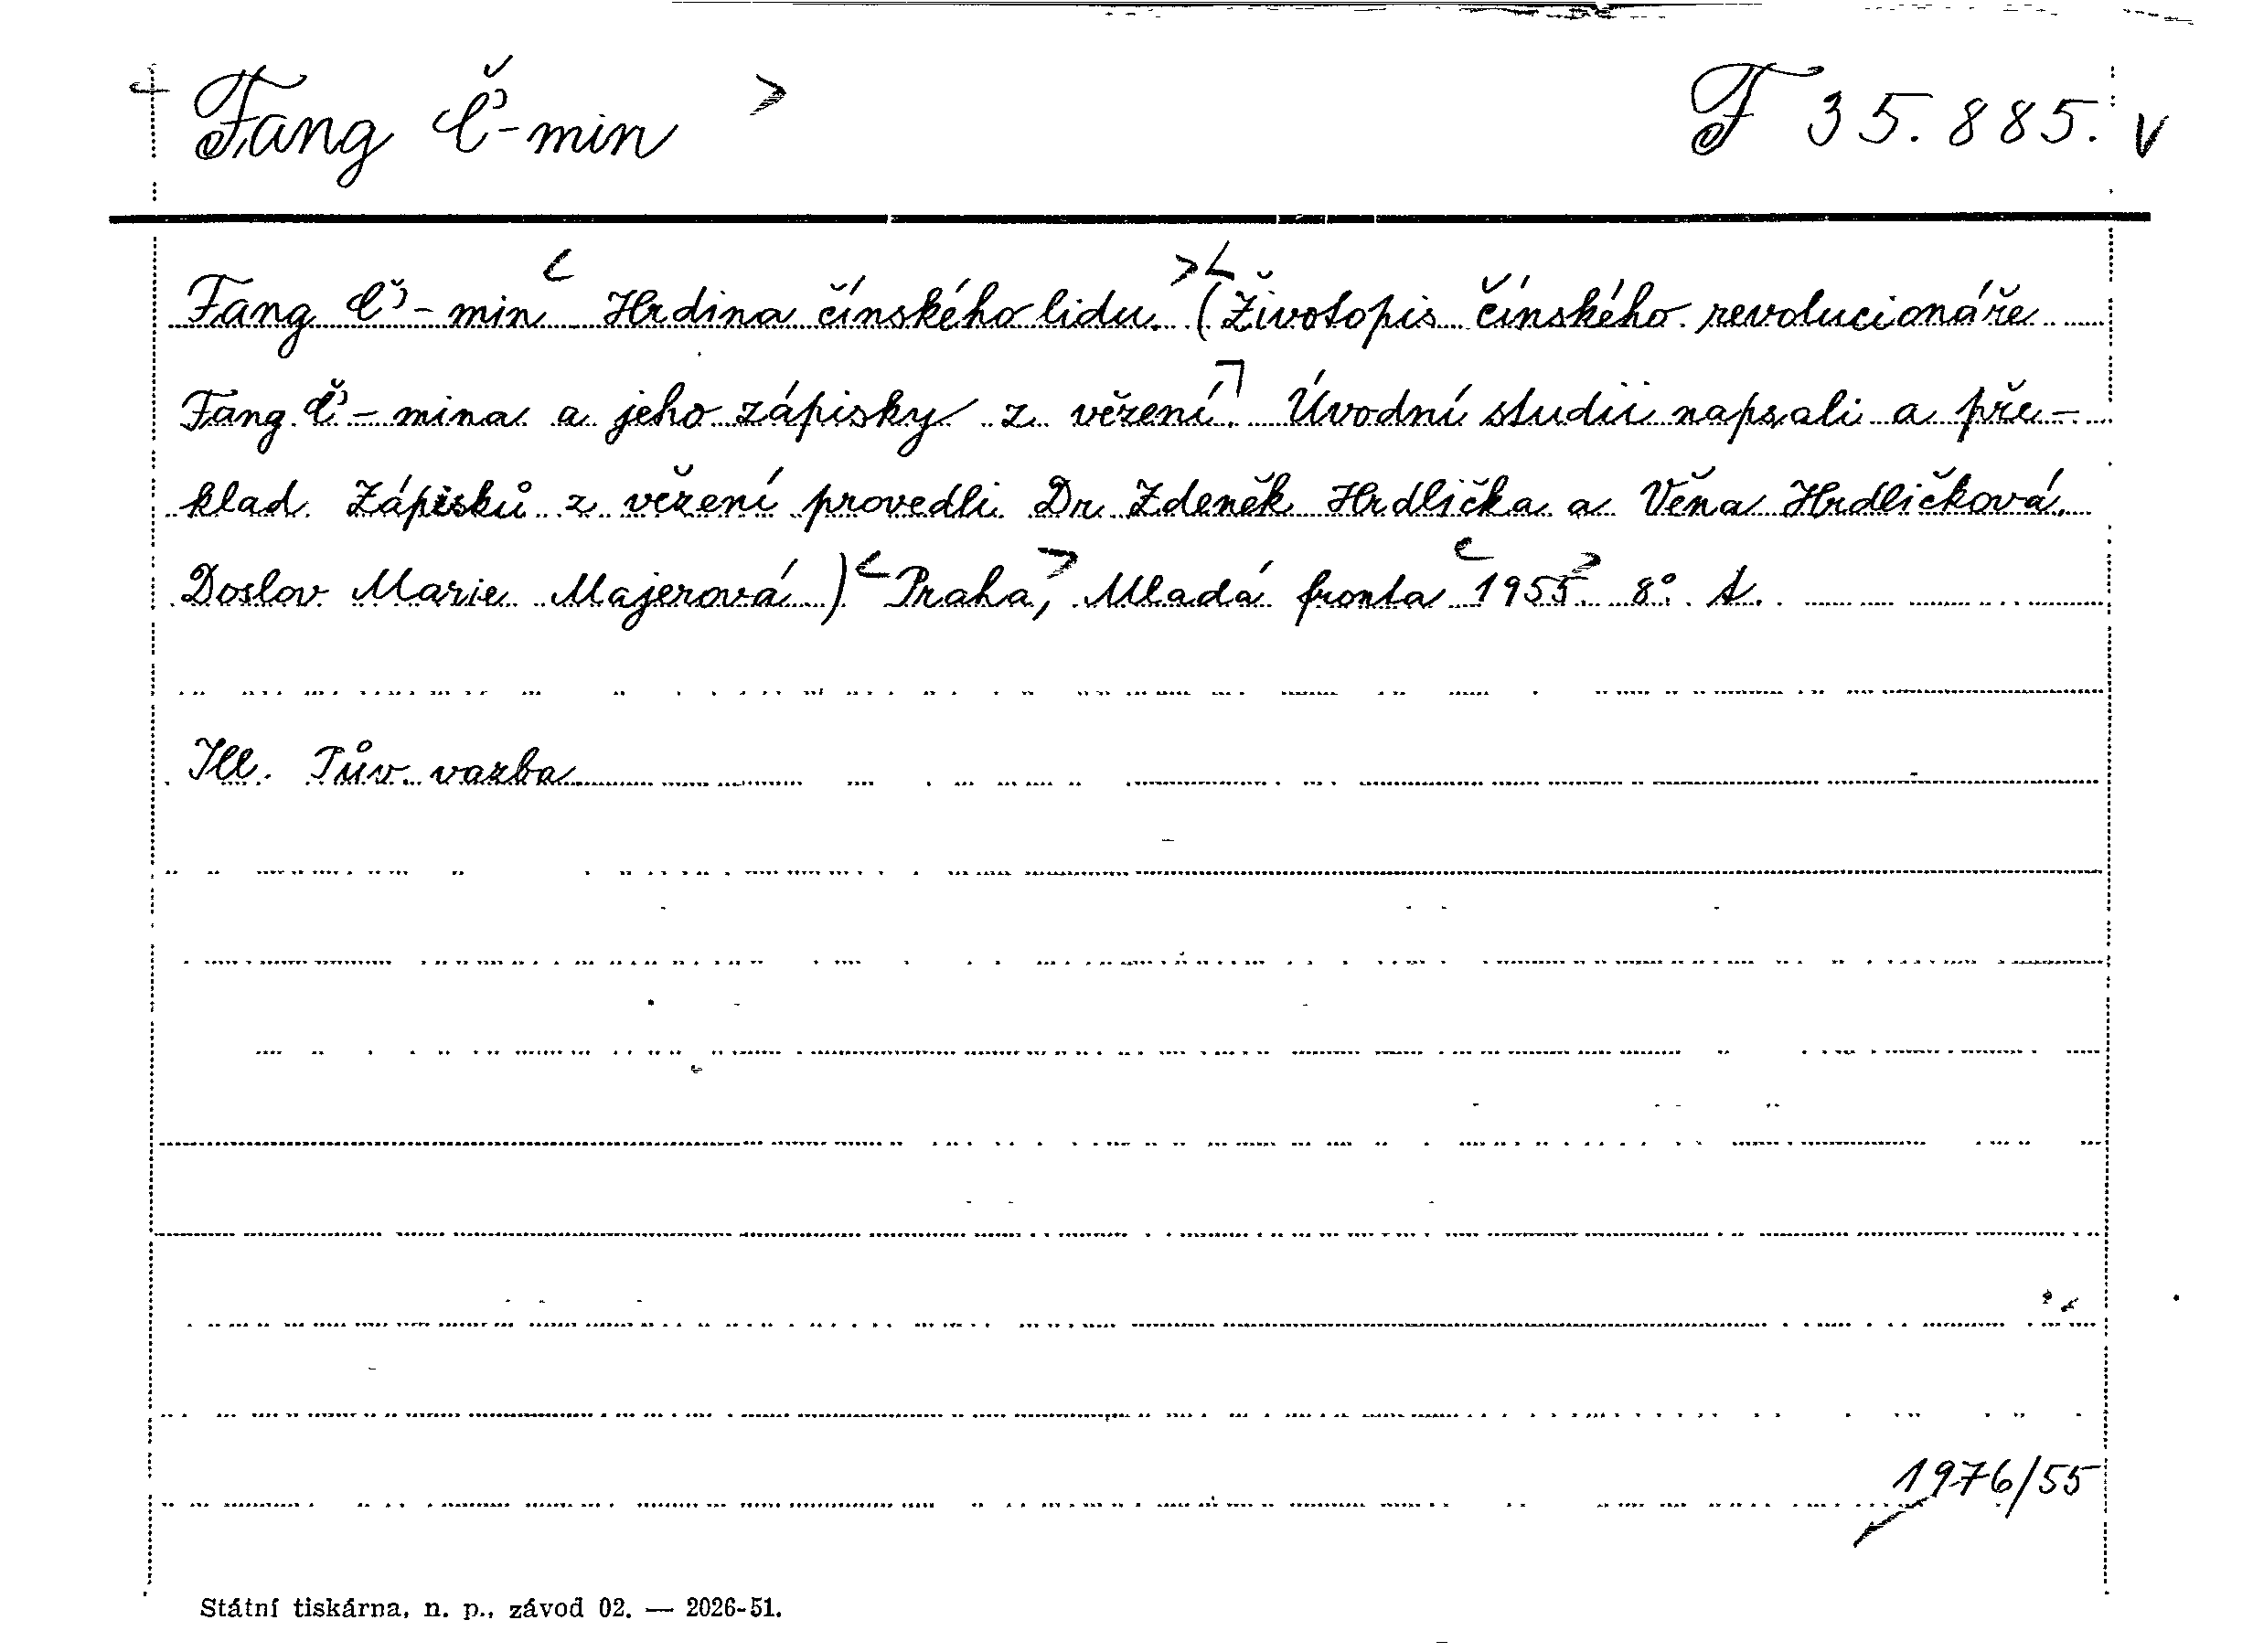 Fang Č'-min F 35.885.
Fang Č'-min Hrdina čínského lidu. (Životopis čínského revolucionáře
Fang Č'-mina a jeho zápisky z vězení. Úvodní studii napsali a pře-
klad Zápisků z vězení provedli Dr Zdeněk Hrdlička a Věna Hrdličková.
Doslov Marie Majerová) Praha, Mladá fronta 1955. 8°.
Ill. Pův. vazba
1976/55
Státní tiskárna, n. p., závod 02. — 2026-51.